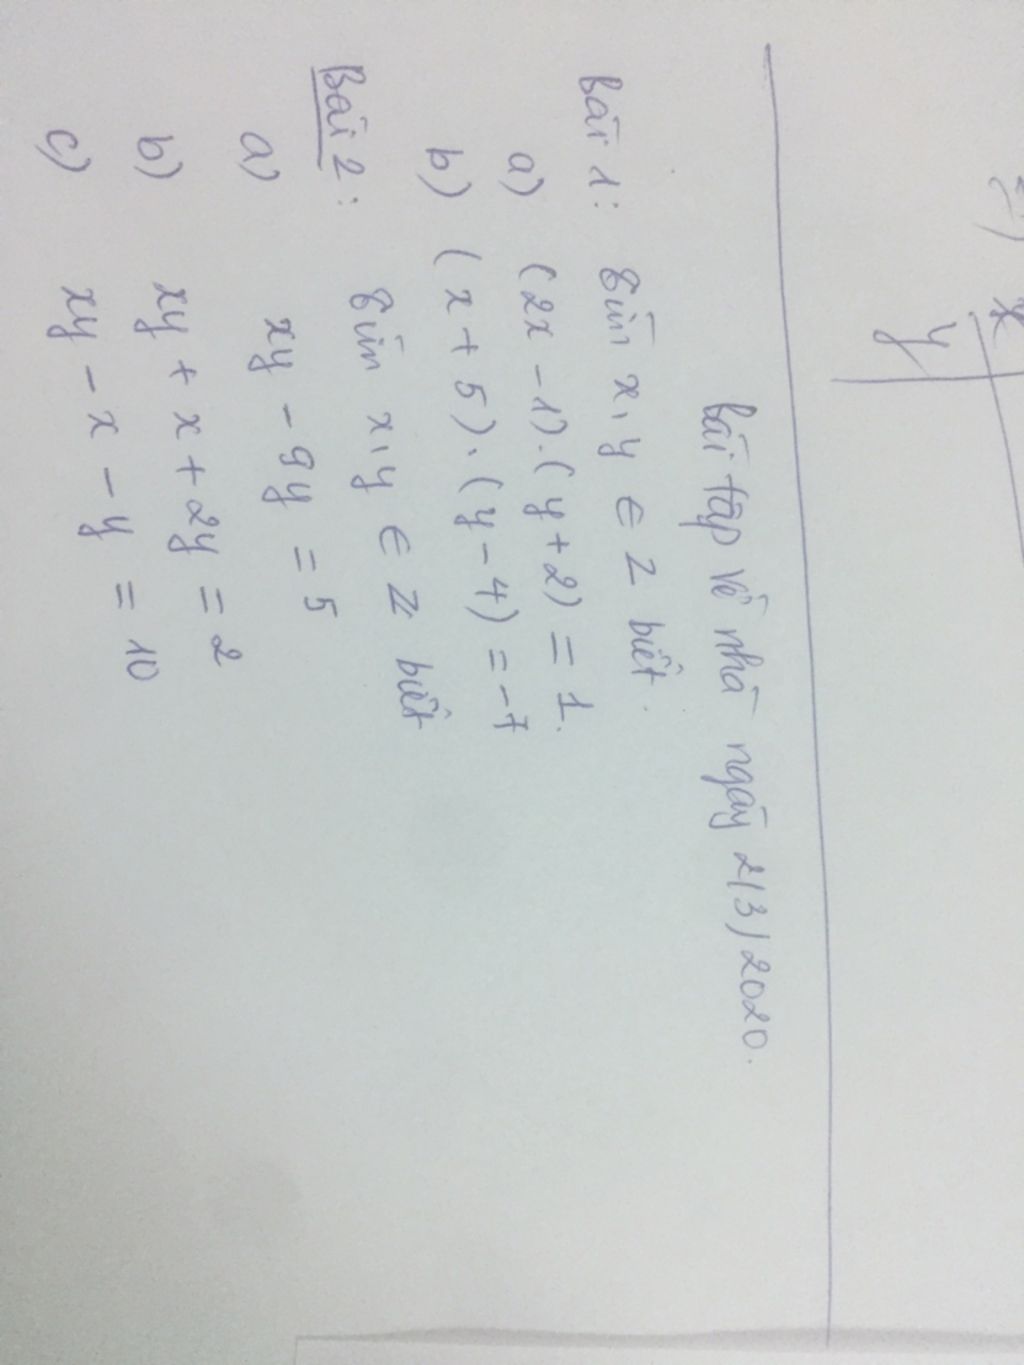 x
y
bài tập về nhà ngày 2/3/2020.
bài 1: Tìm x, y ∈ Z biết.
a) (2x - 1).(y + 2) = 1.
b) (x + 5).(y - 4) = -7
Bài 2: Tìm x, y ∈ Z biết
a) xy - 9y = 5
b) xy + x + 2y = 2
c) xy - x - y = 10